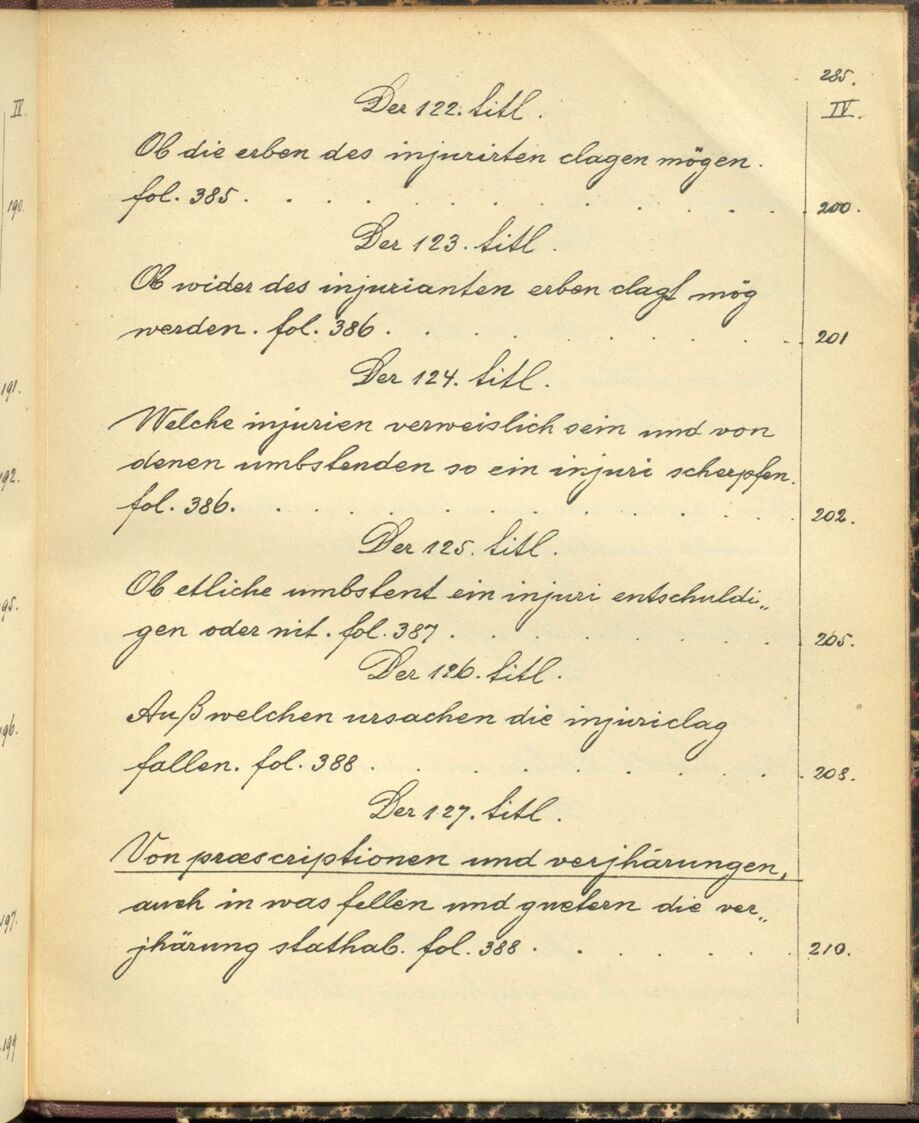 285.
IV.
Der 122. titl.
Ob die erben des injurirten clagen mögen.
fol. 385 . . . . . . . . . . . . 200.
Der 123. titl.
Ob wider des injurianten erben clagt mög
werden. fol. 386. . . . . . . . . . 201
Der 124. titl.
Welche injurien verweislich sein und von
denen umbstenden so ein injuri scherpfen.
fol. 386. . . . . . . . . . . . . 202.
Der 125. titl.
Ob etliche umbstent ein injuri entschuldi„
gen oder nit. fol. 387 . . . . . . . . 205.
Der 126. titl.
Auß welchen ursachen die injuriclag
fallen. fol. 388 . . . . . . . . . . 208.
Der 127. titl.
Von præscriptionen und verjhärungen,
auch in was fellen und guetern die ver„
jhärung stathab. fol. 388 . . . . . . . 210.
IV.
190.
191.
192.
95.
196.
197.
199